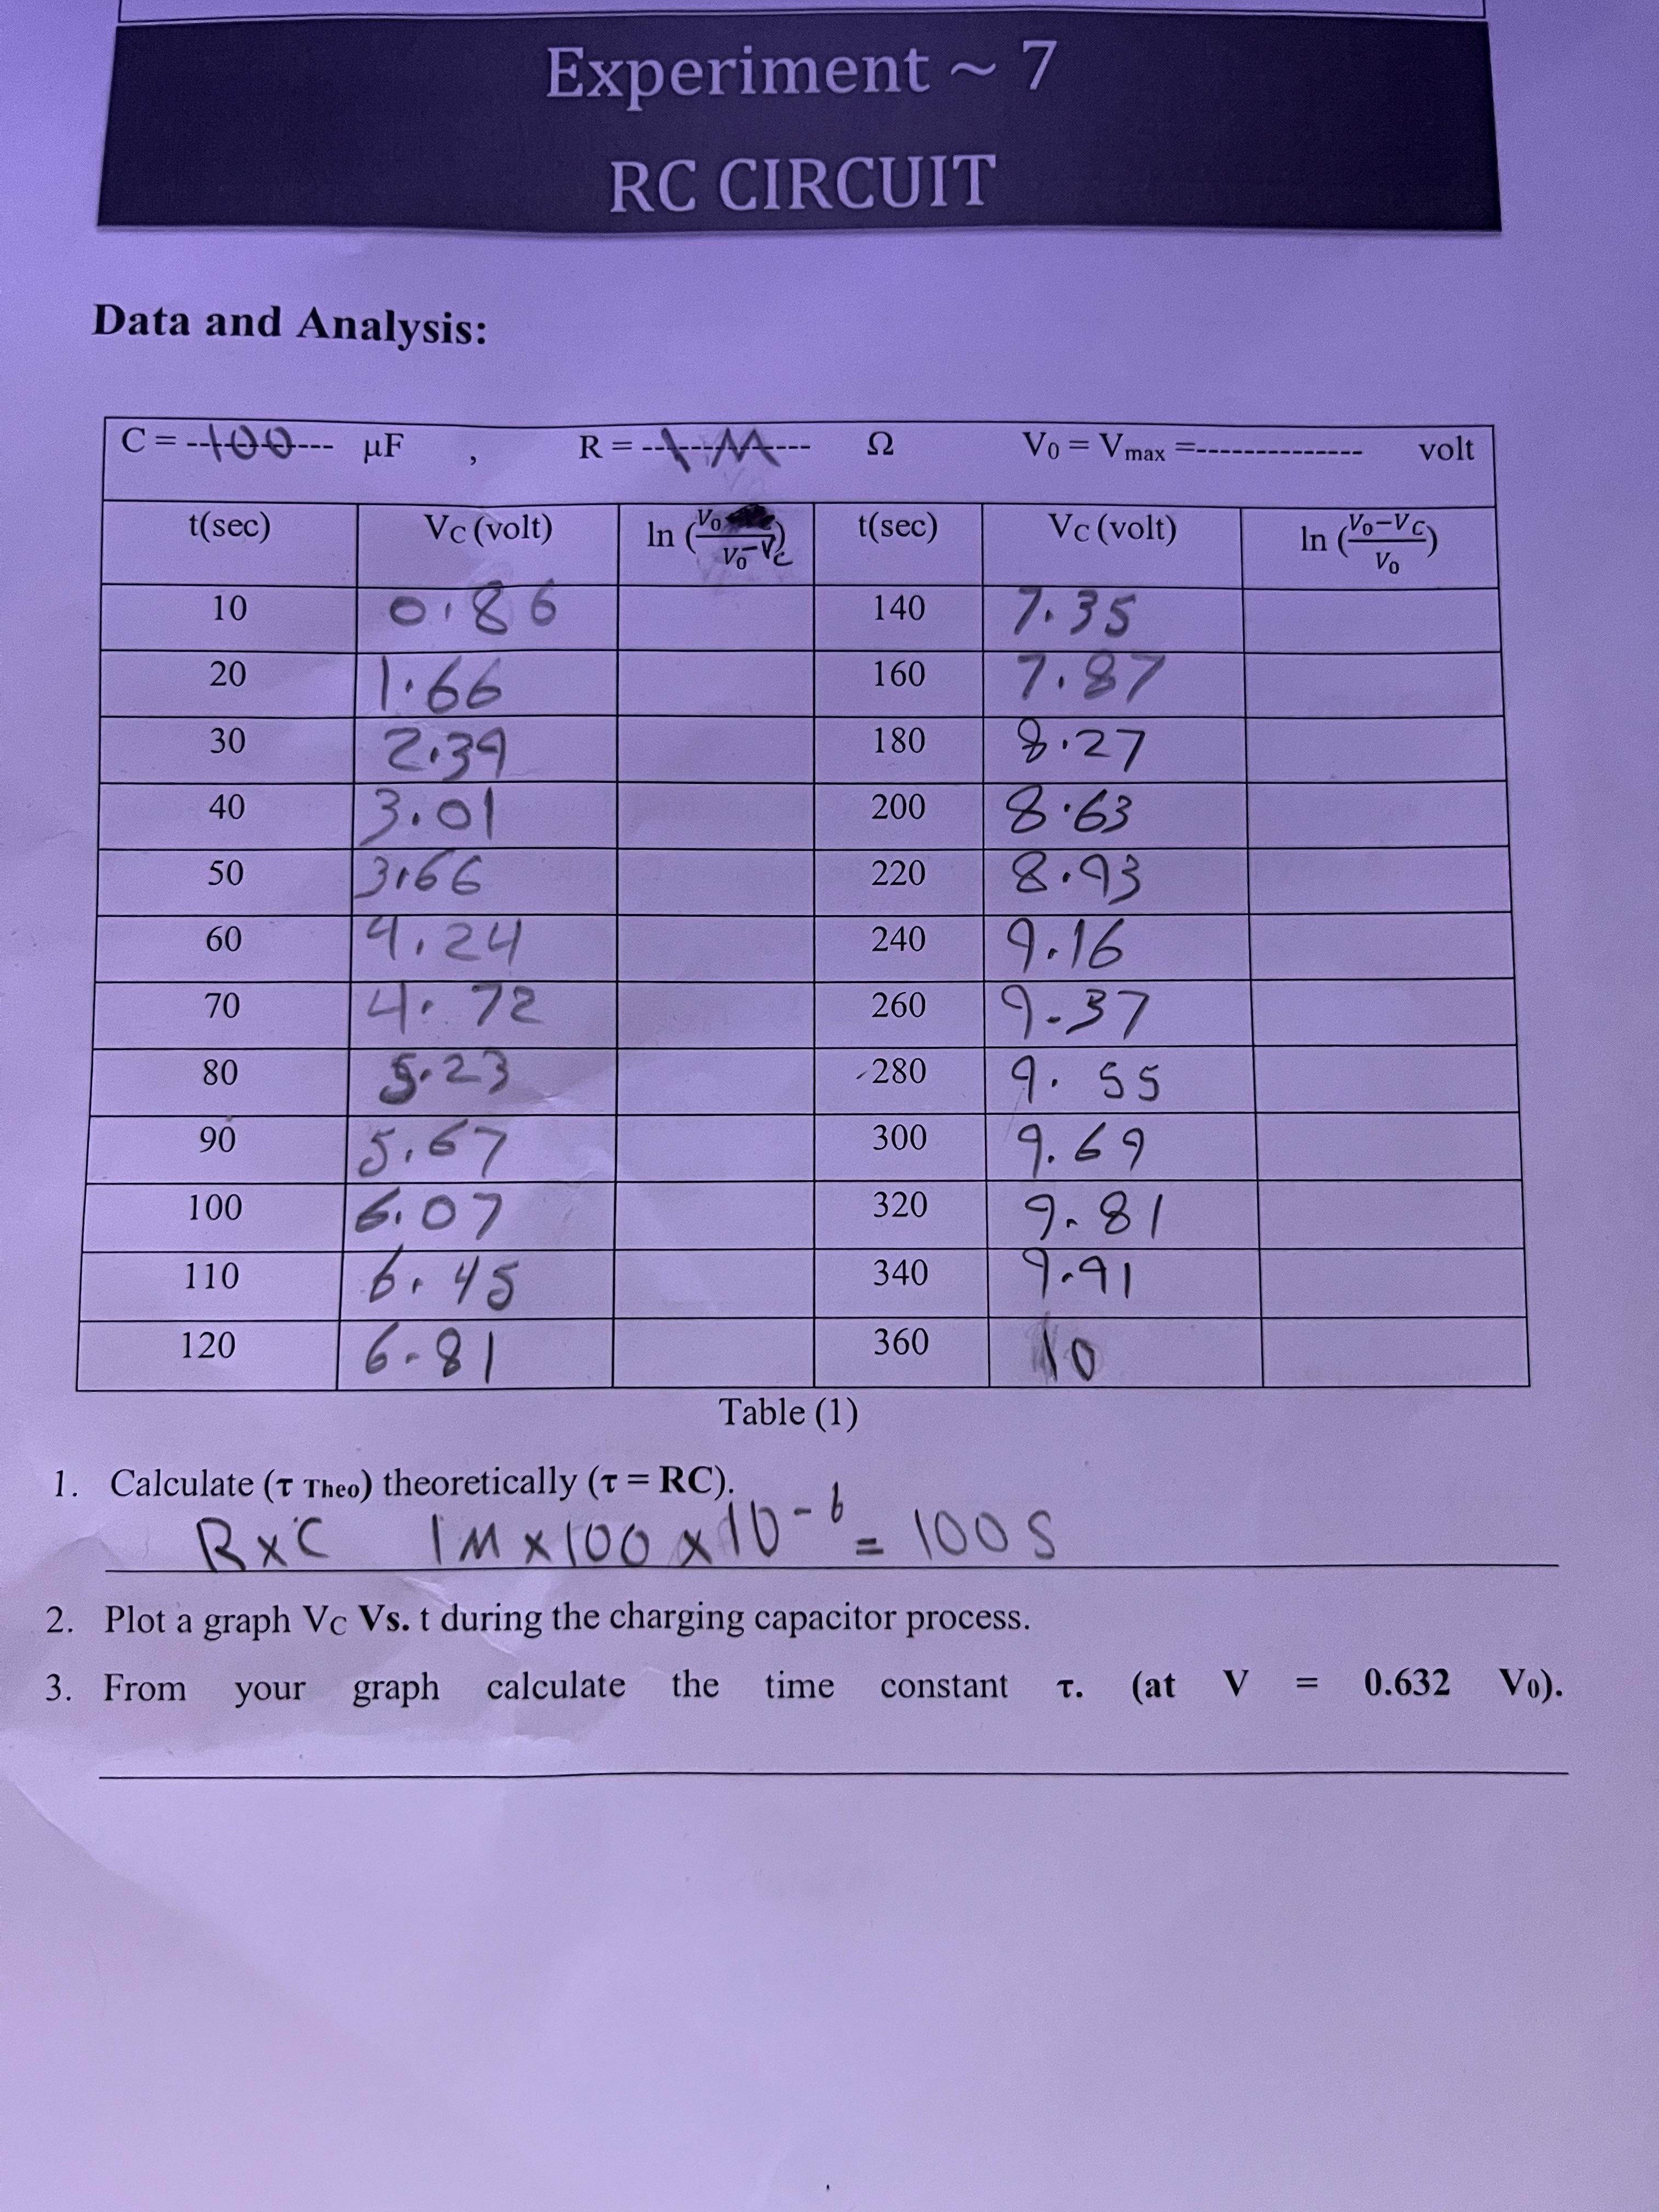 Experiment ~ 7
RC CIRCUIT
Data and Analysis:
C = --100--- μF , R = --1 M---- Ω V0 = Vmax =-------------- volt
t(sec) VC (volt) ln (V0/V0-Vc) t(sec) VC (volt) ln (V0−VC/V0)
10 0.86 140 7.35
20 1.66 160 7.87
30 2.39 180 8.27
40 3.01 200 8.63
50 3.66 220 8.93
60 4.24 240 9.16
70 4.72 260 9.37
80 5.23 280 9.55
90 5.67 300 9.69
100 6.07 320 9.81
110 6.45 340 9.91
120 6.81 360 10
Table (1)
1. Calculate (τ Theo) theoretically (τ = RC).
RxC 1M x 100 x 10-6 = 100 S
2. Plot a graph VC Vs. t during the charging capacitor process.
3. From your graph calculate the time constant τ. (at V = 0.632 V0).